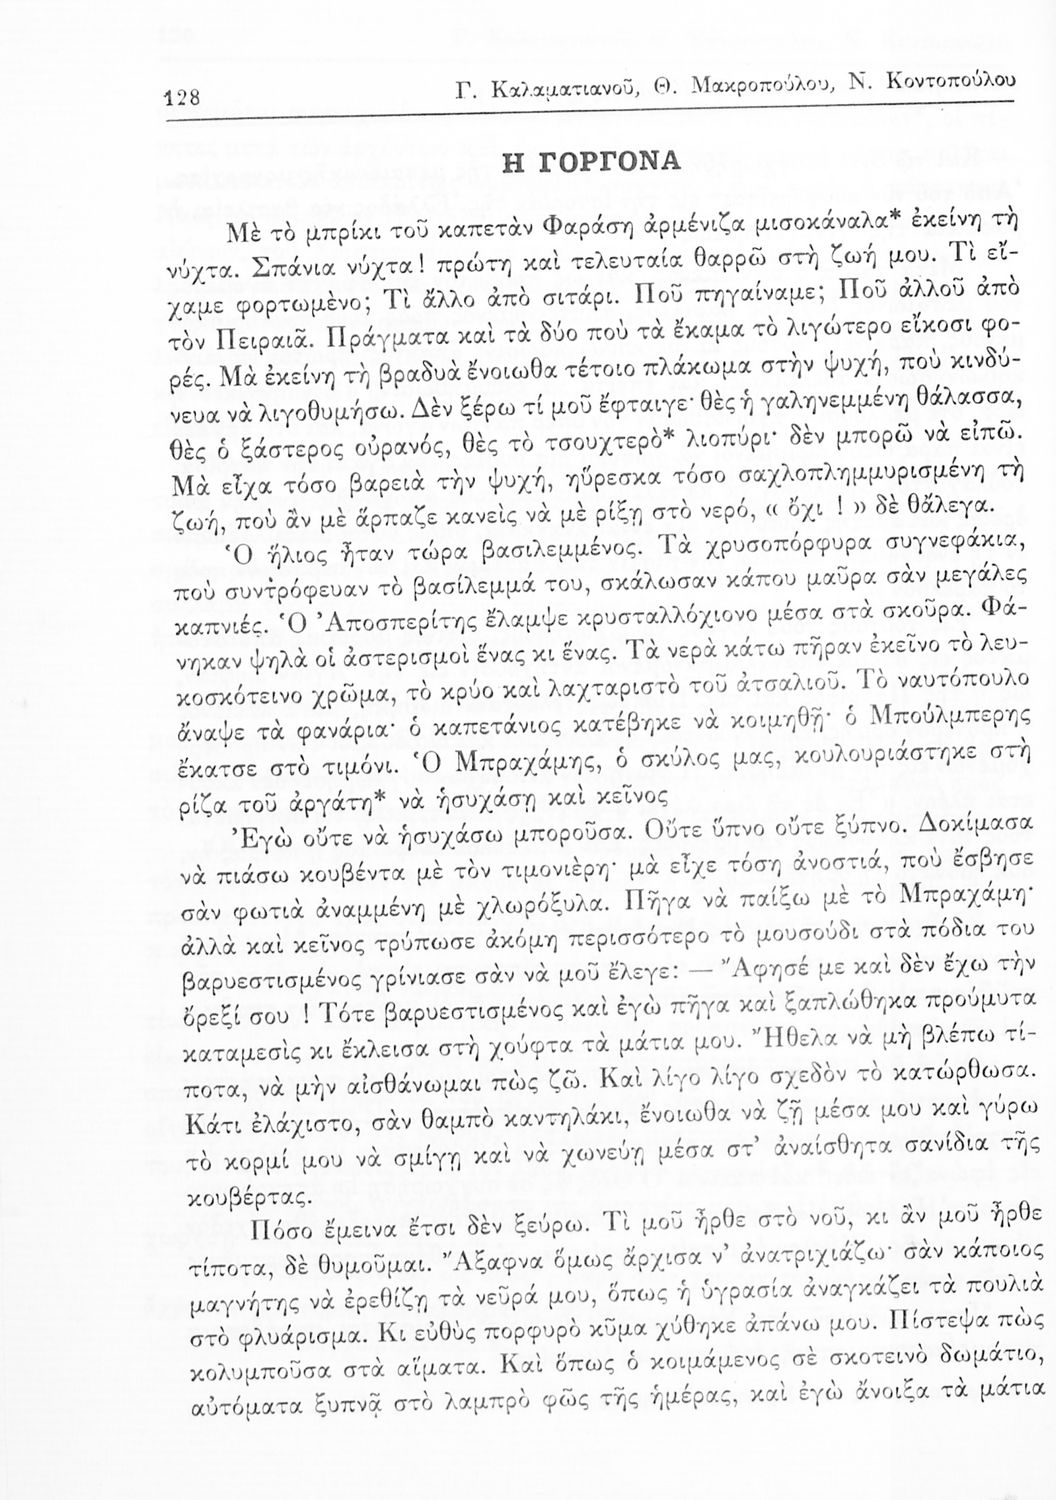 128
Γ. Καλαματιανοῦ, Θ. Μακροπούλου, Ν. Κοντοπούλου
Η ΓΟΡΓΟΝΑ
Μὲ τὸ μπρίκι τοῦ καπετὰν Φαράση ἀρμένιζα μισοκάναλα* ἐκείνη τὴ
νύχτα. Σπάνια νύχτα! πρώτη καὶ τελευταία θαρρῶ στὴ ζωή μου. Τὶ εἴ-
χαμε φορτωμένο; Τὶ ἄλλο ἀπὸ σιτάρι. Ποῦ πηγαίναμε; Ποῦ ἀλλοῦ ἀπὸ
τὸν Πειραιᾶ. Πράγματα καὶ τὰ δύο ποὺ τὰ ἔκαμα τὸ λιγώτερο εἴκοσι φο-
ρές. Μὰ ἐκείνη τὴ βραδυὰ ἔνοιωθα τέτοιο πλάκωμα στὴν ψυχή, ποὺ κινδύ-
νευα νὰ λιγοθυμήσω. Δὲν ξέρω τί μοῦ ἔφταιγε· θὲς ἡ γαληνεμμένη θάλασσα,
θὲς ὁ ξάστερος οὐρανός, θὲς τὸ τσουχτερὸ* λιοπύρι· δὲν μπορῶ νὰ εἰπῶ.
Μὰ εἶχα τόσο βαρειὰ τὴν ψυχή, ηὕρεσκα τόσο σαχλοπλημμυρισμένη τὴ
ζωή, ποὺ ἂν μὲ ἅρπαζε κανεὶς νὰ μὲ ρίξῃ στὸ νερό, « ὄχι ! » δὲ θἄλεγα.
Ὁ ἥλιος ἦταν τώρα βασιλεμμένος. Τὰ χρυσοπόρφυρα συγνεφάκια,
ποὺ συντρόφευαν τὸ βασίλεμμά του, σκάλωσαν κάπου μαῦρα σὰν μεγάλες
καπνιές. Ὁ Ἀποσπερίτης ἔλαμψε κρυσταλλόχιονο μέσα στὰ σκοῦρα. Φά-
νηκαν ψηλὰ οἱ ἀστερισμοὶ ἕνας κι ἕνας. Τὰ νερὰ κάτω πῆραν ἐκεῖνο τὸ λευ-
κοσκότεινο χρῶμα, τὸ κρύο καὶ λαχταριστὸ τοῦ ἀτσαλιοῦ. Τὸ ναυτόπουλο
ἄναψε τὰ φανάρια· ὁ καπετάνιος κατέβηκε νὰ κοιμηθῇ· ὁ Μπούλμπερης
ἔκατσε στὸ τιμόνι. Ὁ Μπραχάμης, ὁ σκύλος μας, κουλουριάστηκε στὴ
ρίζα τοῦ ἀργάτη* νὰ ἡσυχάσῃ καὶ κεῖνος
Ἐγὼ οὔτε νὰ ἡσυχάσω μποροῦσα. Οὔτε ὕπνο οὔτε ξύπνο. Δοκίμασα
νὰ πιάσω κουβέντα μὲ τὸν τιμονιέρη· μὰ εἶχε τόση ἀνοστιά, ποὺ ἔσβησε
σὰν φωτιὰ ἀναμμένη μὲ χλωρόξυλα. Πῆγα νὰ παίξω μὲ τὸ Μπραχάμη·
ἀλλὰ καὶ κεῖνος τρύπωσε ἀκόμη περισσότερο τὸ μουσούδι στὰ πόδια του
βαρυεστισμένος γρίνιασε σὰν νὰ μοῦ ἔλεγε: — Ἄφησέ με καὶ δὲν ἔχω τὴν
ὄρεξί σου ! Τότε βαρυεστισμένος καὶ ἐγὼ πῆγα καὶ ξαπλώθηκα προύμυτα
καταμεσὶς κι ἔκλεισα στὴ χούφτα τὰ μάτια μου. Ἤθελα νὰ μὴ βλέπω τί-
ποτα, νὰ μὴν αἰσθάνωμαι πὼς ζῶ. Καὶ λίγο λίγο σχεδὸν τὸ κατώρθωσα.
Κάτι ἐλάχιστο, σὰν θαμπὸ καντηλάκι, ἔνοιωθα νὰ ζῇ μέσα μου καὶ γύρω
τὸ κορμί μου νὰ σμίγῃ καὶ νὰ χωνεύῃ μέσα στ’ ἀναίσθητα σανίδια τῆς
κουβέρτας.
Πόσο ἔμεινα ἔτσι δὲν ξεύρω. Τὶ μοῦ ἦρθε στὸ νοῦ, κι ἂν μοῦ ἦρθε
τίποτα, δὲ θυμοῦμαι. Ἄξαφνα ὅμως ἄρχισα ν’ ἀνατριχιάζω· σὰν κάποιος
μαγνήτης νὰ ἐρεθίζῃ τὰ νεῦρά μου, ὅπως ἡ ὑγρασία ἀναγκάζει τὰ πουλιὰ
στὸ φλυάρισμα. Κι εὐθὺς πορφυρὸ κῦμα χύθηκε ἀπάνω μου. Πίστεψα πὼς
κολυμποῦσα στὰ αἵματα. Καὶ ὅπως ὁ κοιμάμενος σὲ σκοτεινὸ δωμάτιο,
αὐτόματα ξυπνᾷ στὸ λαμπρὸ φῶς τῆς ἡμέρας, καὶ ἐγὼ ἄνοιξα τὰ μάτια